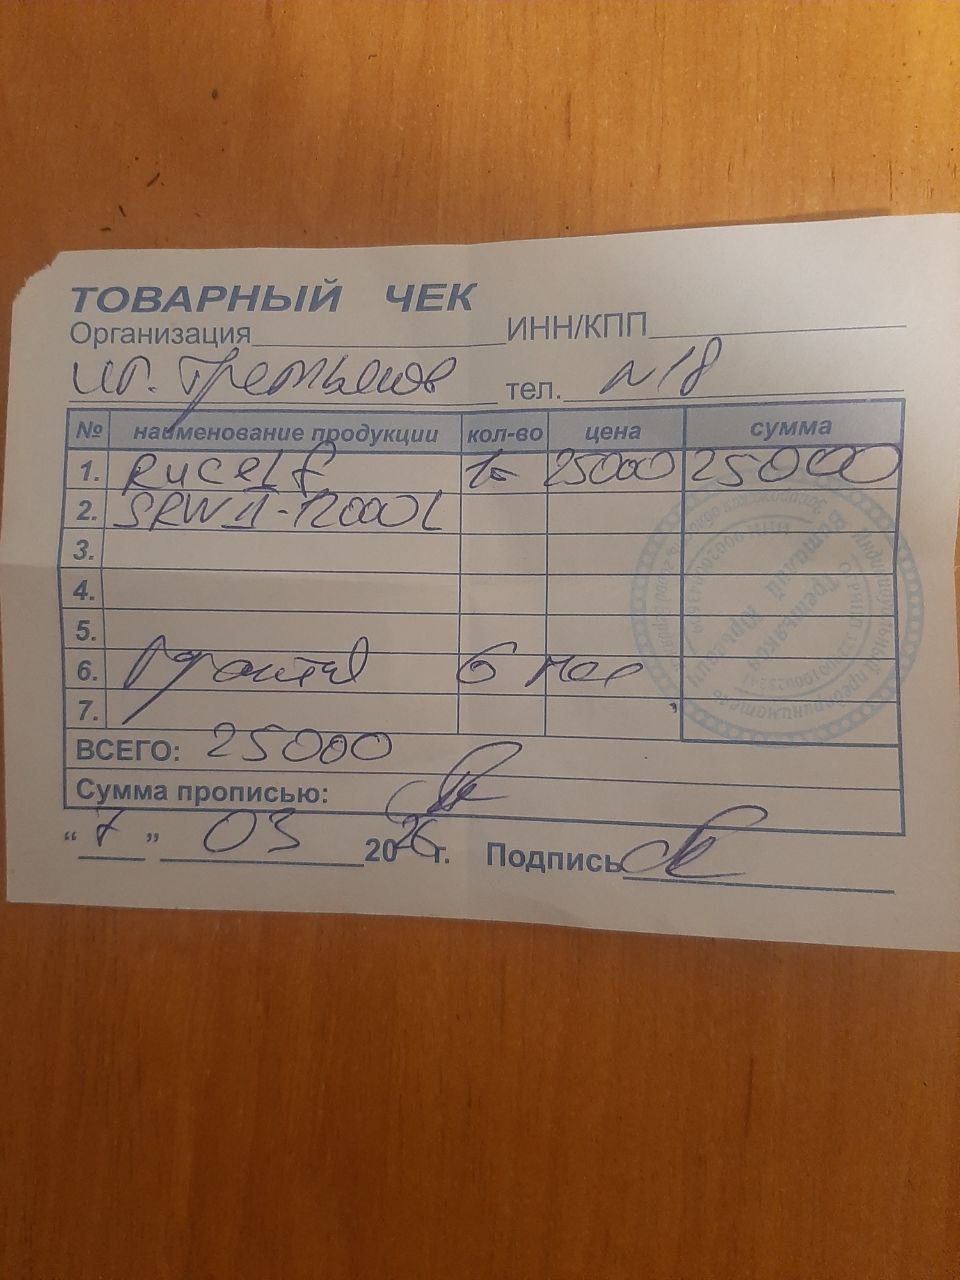 ТОВАРНЫЙ ЧЕК
Организация ИНН/КПП
ип. Третьяков тел. №18
№ наименование продукции кол-во цена сумма
1. RUCELF 1= 25000 25000
2. SRW II-12000L
3.
4.
5.
6. Гарантия 6 мес
7.
ВСЕГО: 25000
Сумма прописью:
"7" 03 2026г. Подпись
Индивидуальный предприниматель
Третьяков
Юрьевич
ИНН